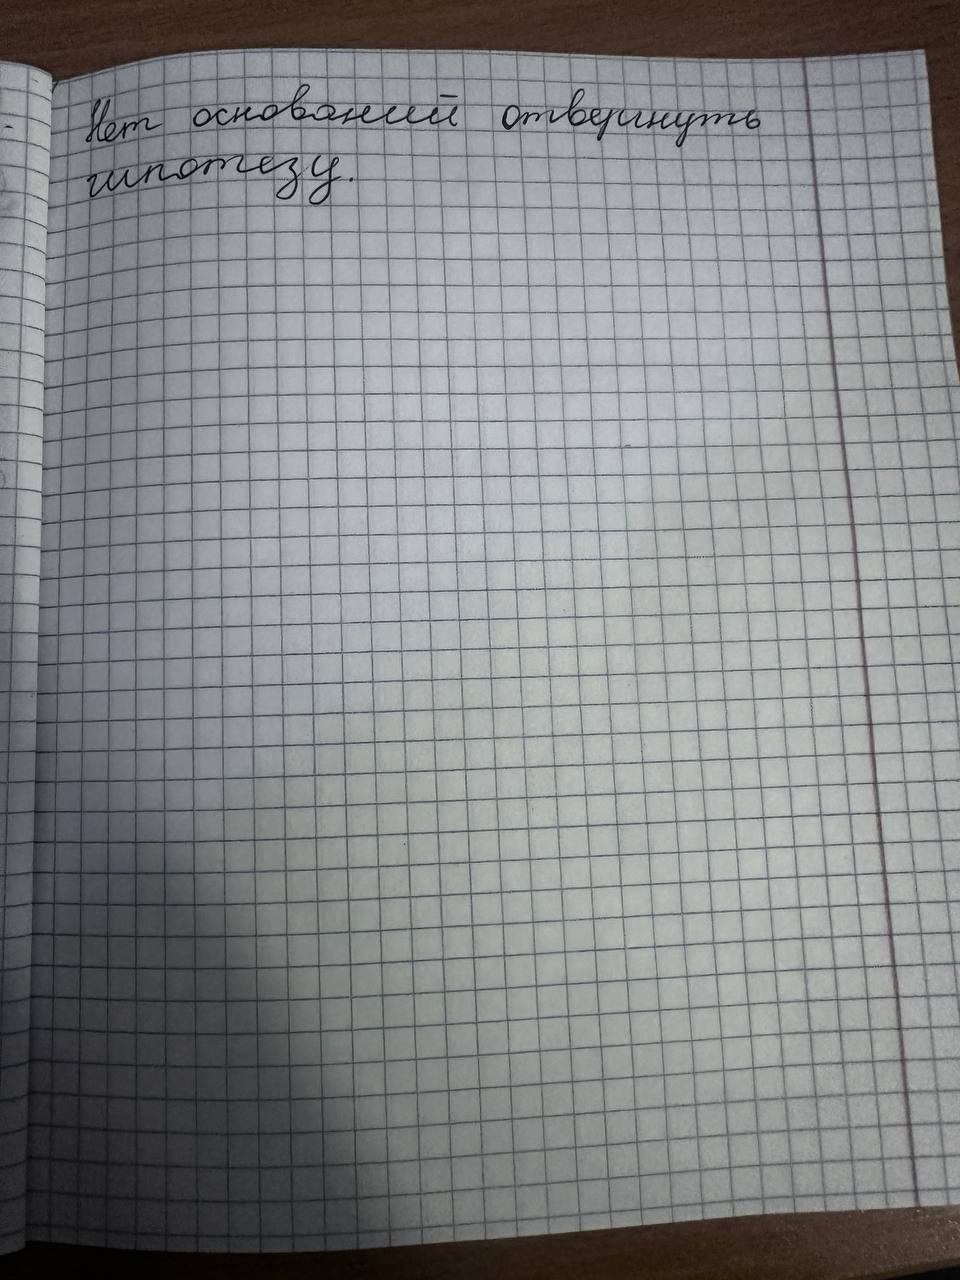 Нет оснований отвергнуть
гипотезу.